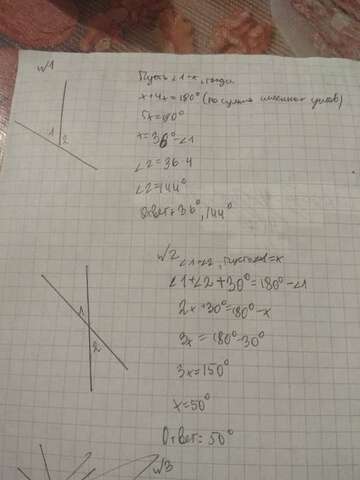 №1
Пусть ∠1-x, тогда
x+4x=180° (по сумме смежных углов)
5x=180°
x=36°-∠1
∠2=36·4
∠2=144°
Ответ: 36°, 144°
1 2
№2
∠1=∠2, пусть ∠1=x
∠1+∠2+30°=180°-∠1
2x+30°=180°-x
3x=180°-30°
3x=150°
x=50°
Ответ: 50°
1
2
№3